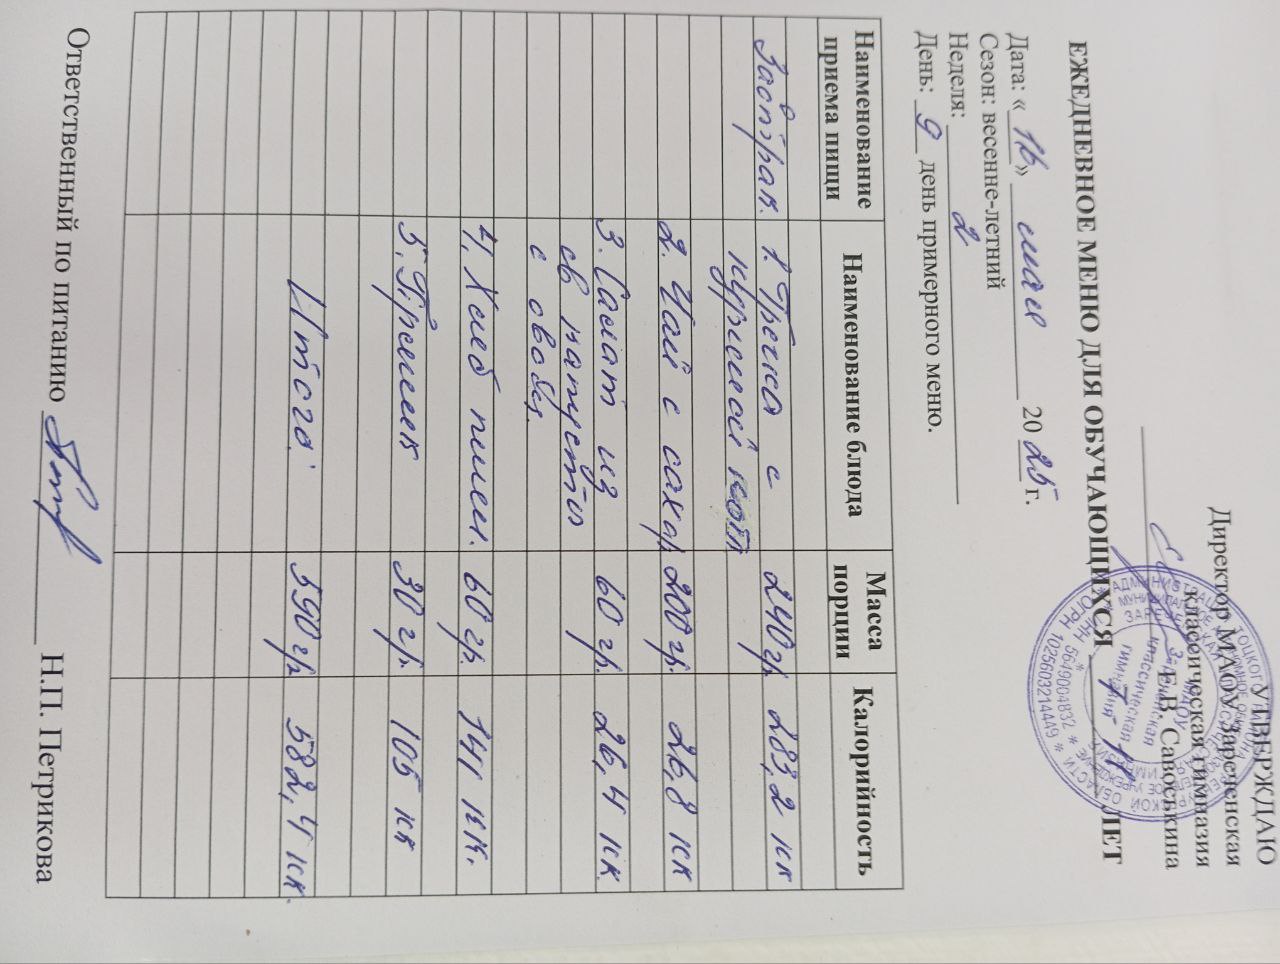 УТВЕРЖДАЮ
Директор МАОУ Зареченская
классическая гимназия
Е.В. Савоськина
ЕЖЕДНЕВНОЕ МЕНЮ ДЛЯ ОБУЧАЮЩИХСЯ 7- ЛЕТ
Дата: «16» мая 2025 г.
Сезон: весенне-летний
Неделя: 2
День: 9 день примерного меню.
Наименование приема пищи Наименование блюда Масса порции Калорийность
Завтрак. 1. Гречка с 240 гр. 283,2 кк
куриной котл
2. Чай с сахар. 200 гр. 26,8 кк
3. Салат из 60 гр. 26,4 кк
св капусты
с овощ.
4. Хлеб пшен. 60 гр. 141 кк.
5. Пряник 30 гр. 105 кк
Итого: 590 гр. 582,4 кк.
Ответственный по питанию Н.П. Петрикова